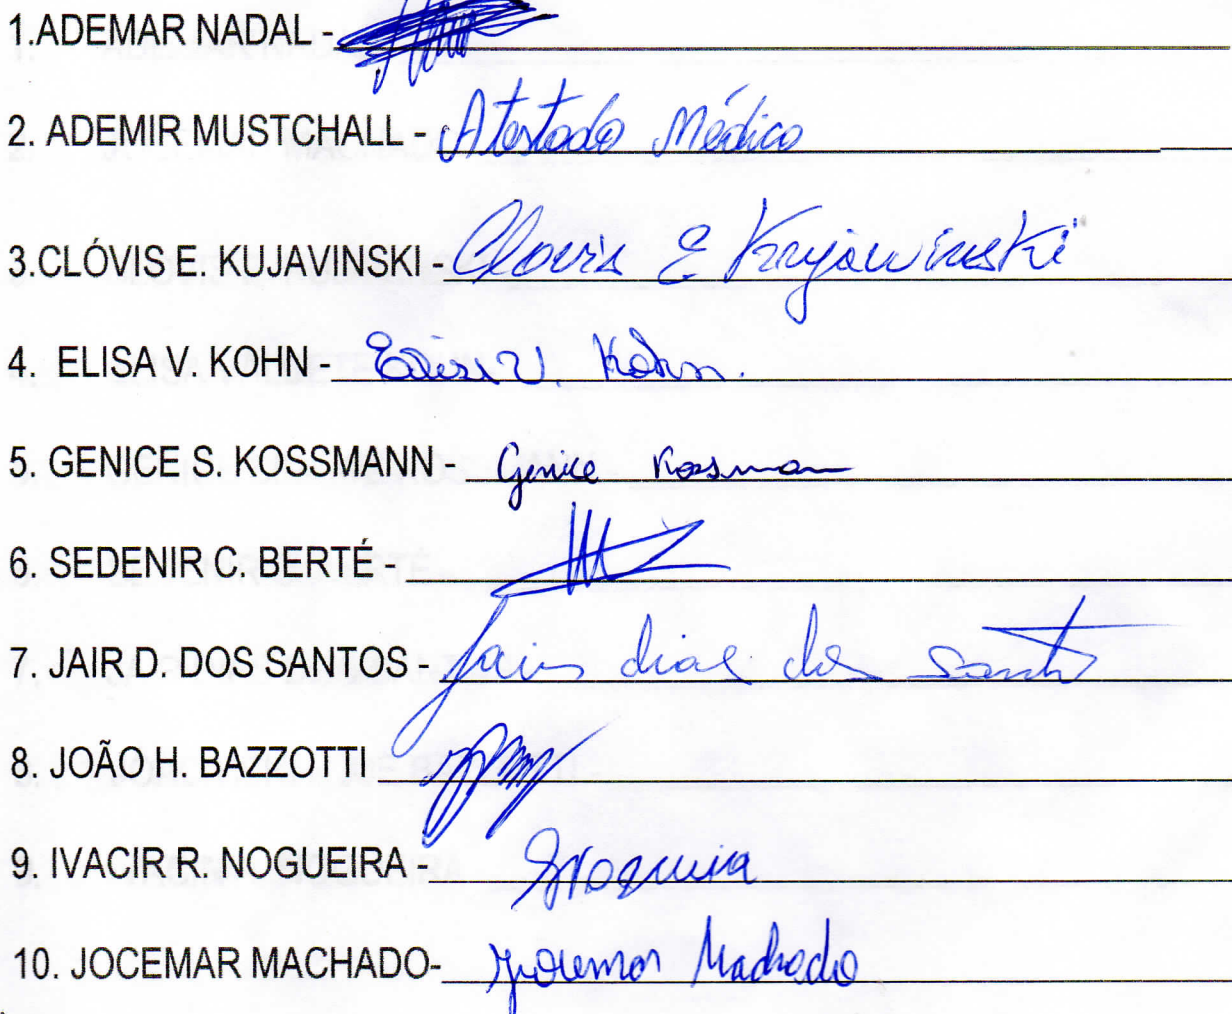 1.ADEMAR NADAL -
2. ADEMIR MUSTCHALL - Atestado Médico
3.CLÓVIS E. KUJAVINSKI - Clovis E Krujawinski
4. ELISA V. KOHN - Elisa V. Kohn.
5. GENICE S. KOSSMANN - Genice Kossman
6. SEDENIR C. BERTÉ -
7. JAIR D. DOS SANTOS - Jair dias dos Santos
8. JOÃO H. BAZZOTTI
9. IVACIR R. NOGUEIRA - Nogueira
10. JOCEMAR MACHADO- Jocemar Machado